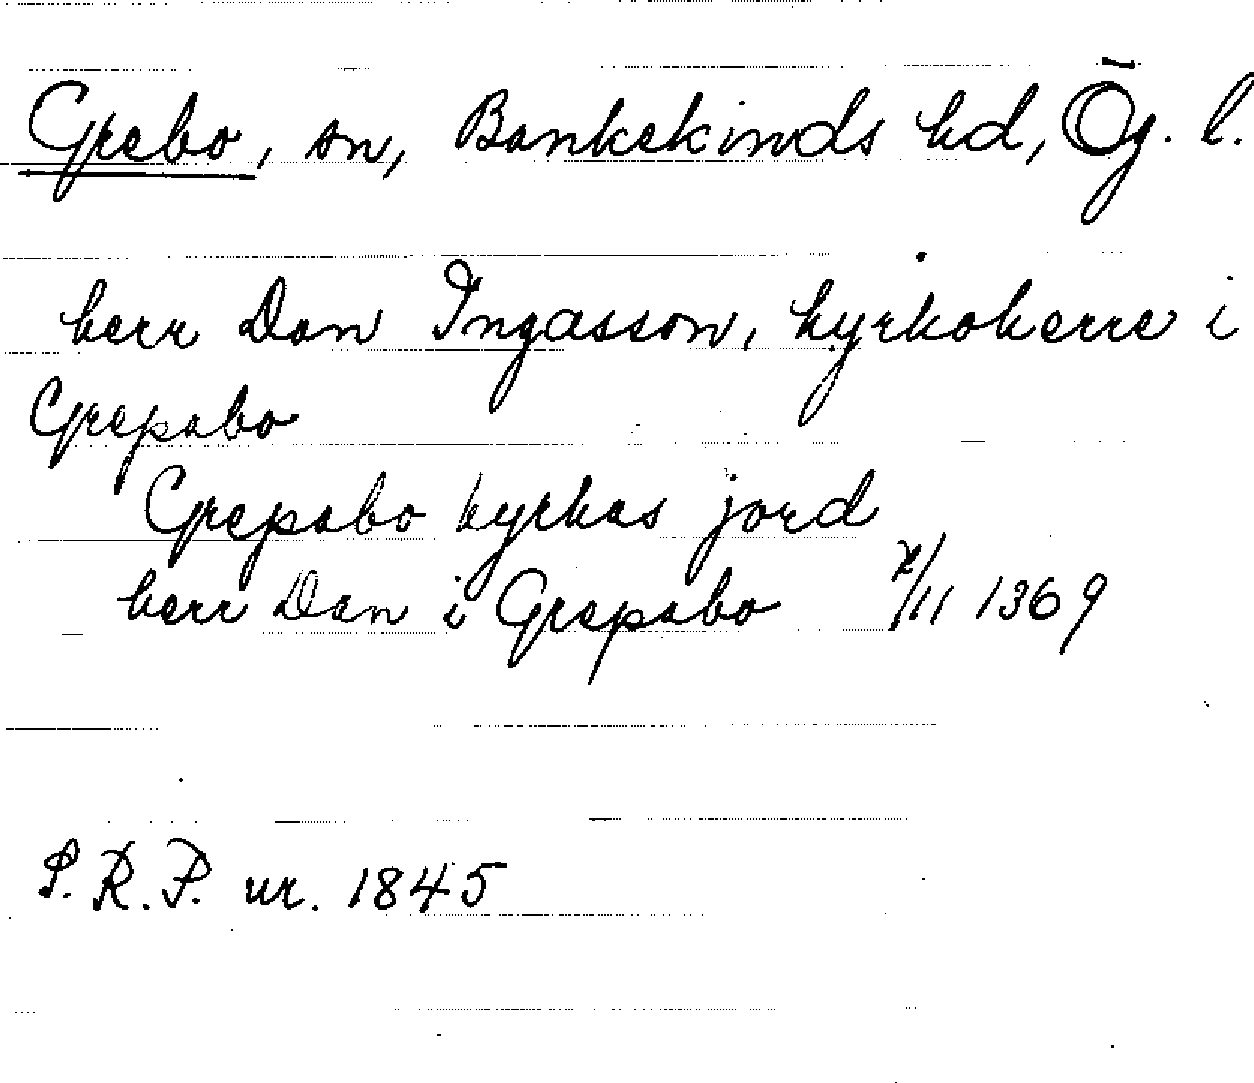 Grebo, sn, Bankekinds hd, Ög. l.
herr Dan Ingasson, kyrkoherre i
Grepabo
Grepabo kyrkas jord
herr Dan i Grepabo /11 1369
S.R.P. nr. 1845